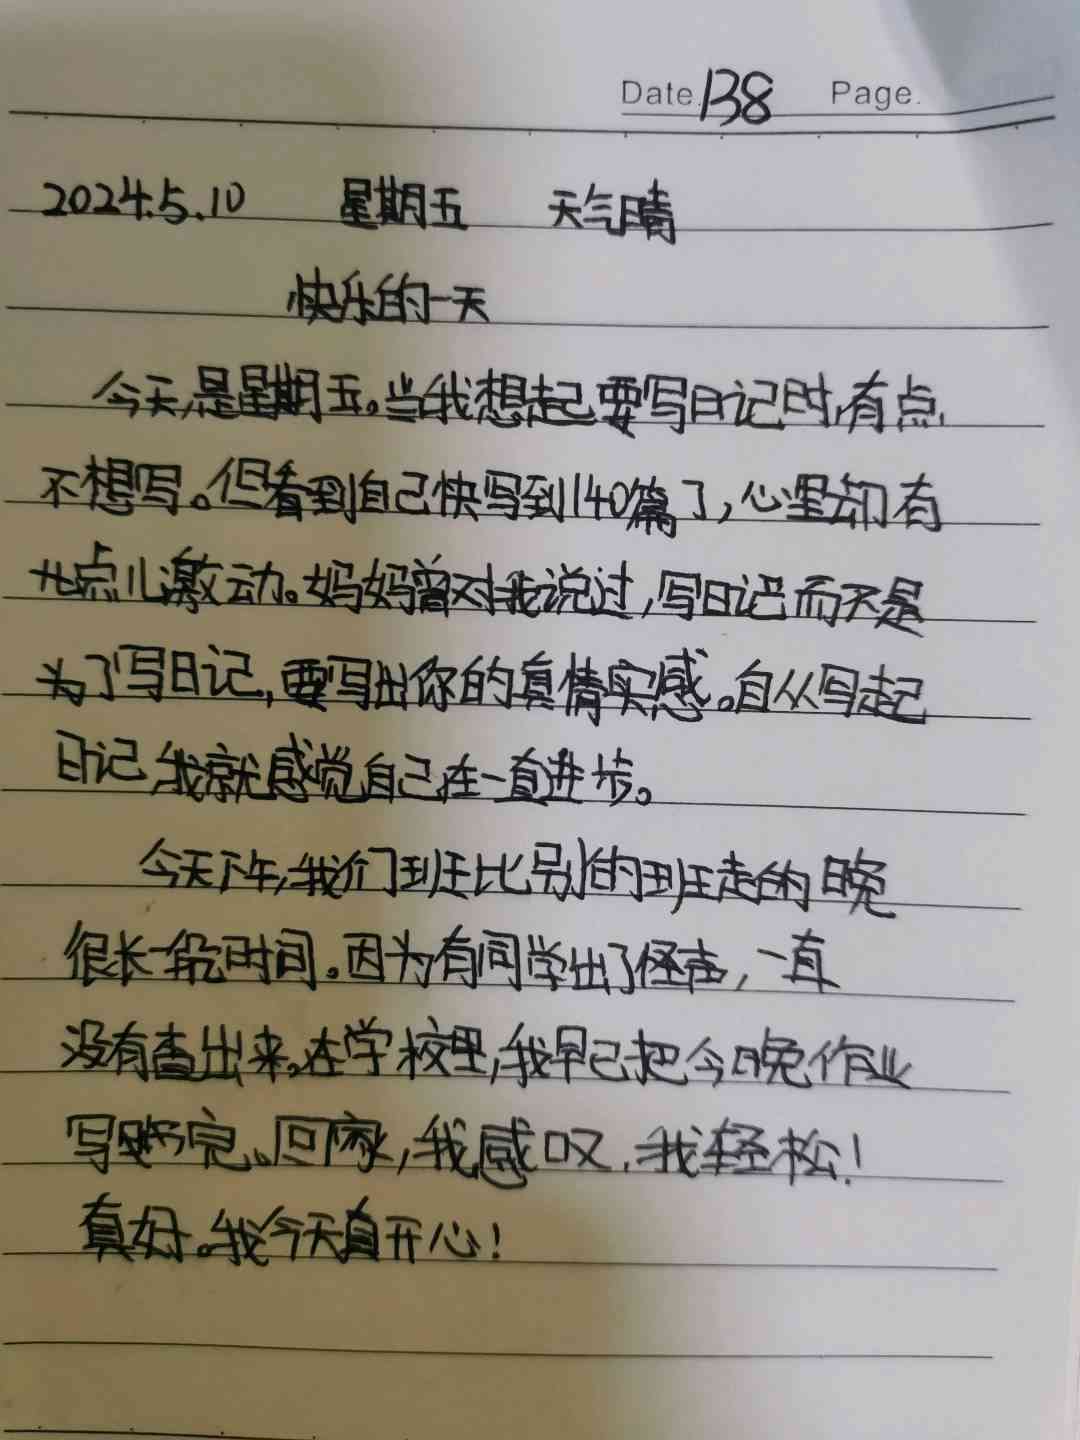 Date. 138 Page.
2024.5.10 星期五 天气晴
快乐的一天
今天,是星期五。当我想起要写日记时,有点
不想写。但看到自己快写到140篇了,心里却有
点儿激动。妈妈曾对我说过,写日记而不是
为了写日记,要写出你的真情实感。自从写起
日记,我就感觉自己在一直进步。
今天下午,我们班比别的班走的晚
很长一段时间。因为有同学出了怪声,一直
没有查出来。在学校里,我早已把今晚作业
写完。回家,我感叹,我轻松!
真好。我今天真开心!